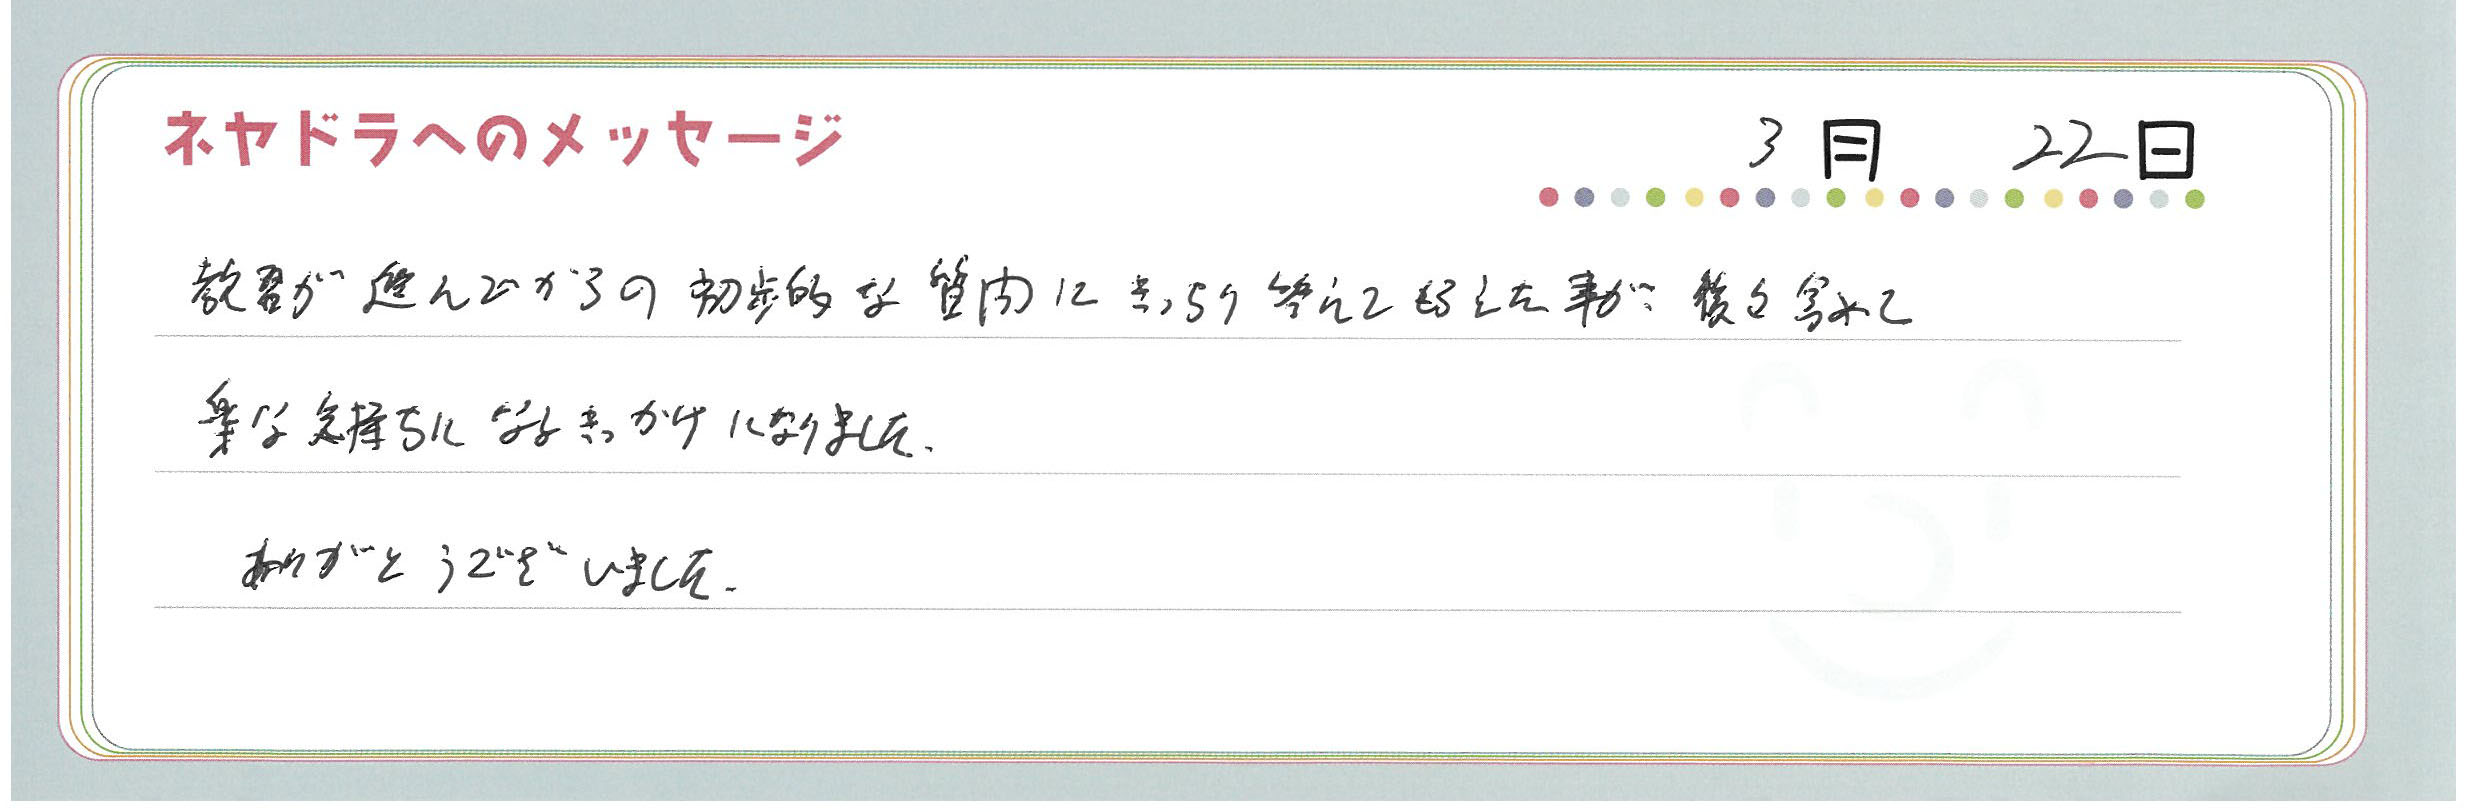 ネヤドラへのメッセージ
3月 22日
教習が進んでからの初歩的な質問にきっちり答えてもらえた事が、後々
楽な気持ちになるきっかけになりました.
ありがとうございました.